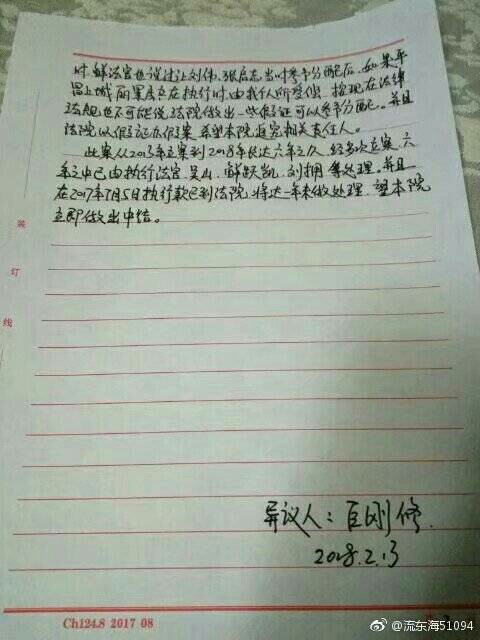 时,鲜法官也说过让刘伟、张启志当时参予分配后,如果平
昌上城丽景房产在执行时,由我们所受偿,按现在法律
法规也不可能说,法院做出一些假证可以参予分配。并且
法院以假证办假案,希望本院追究相关责任人。
此案从2013年立案到2018年长达六年之久,经多次立案,六
年之中已由执行法官,吴山,鲜跃凯,刘拥等处理。并且
在2017年7月5日执行款已到法院,将达一年未做处理,望本院
立即做出中结。
装
订
线
异议人:臣刚修
2018.2.13
Ch124.8 2017 08
@流东海51094